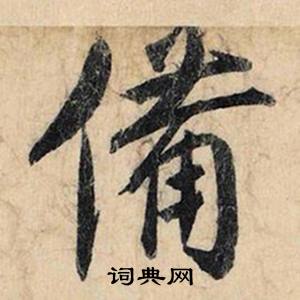 備
词典网